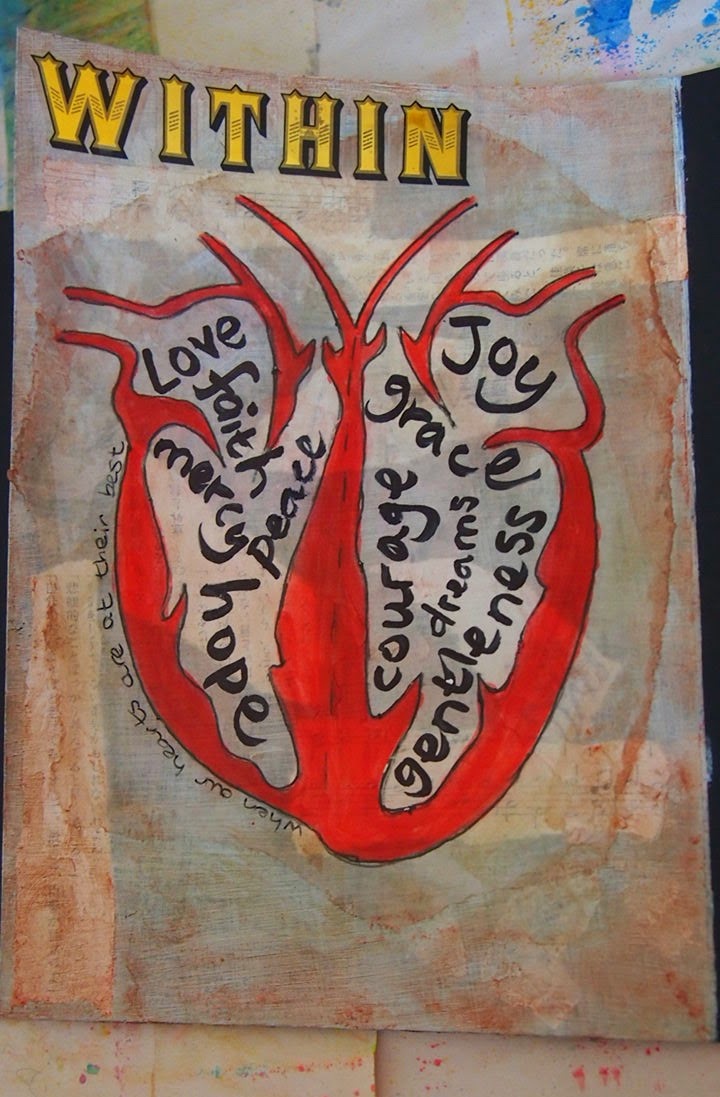 WITHIN
Love
faith
mercy
peace
hope
Joy
grace
courage
dreams
gentleness
when our hearts are at their best